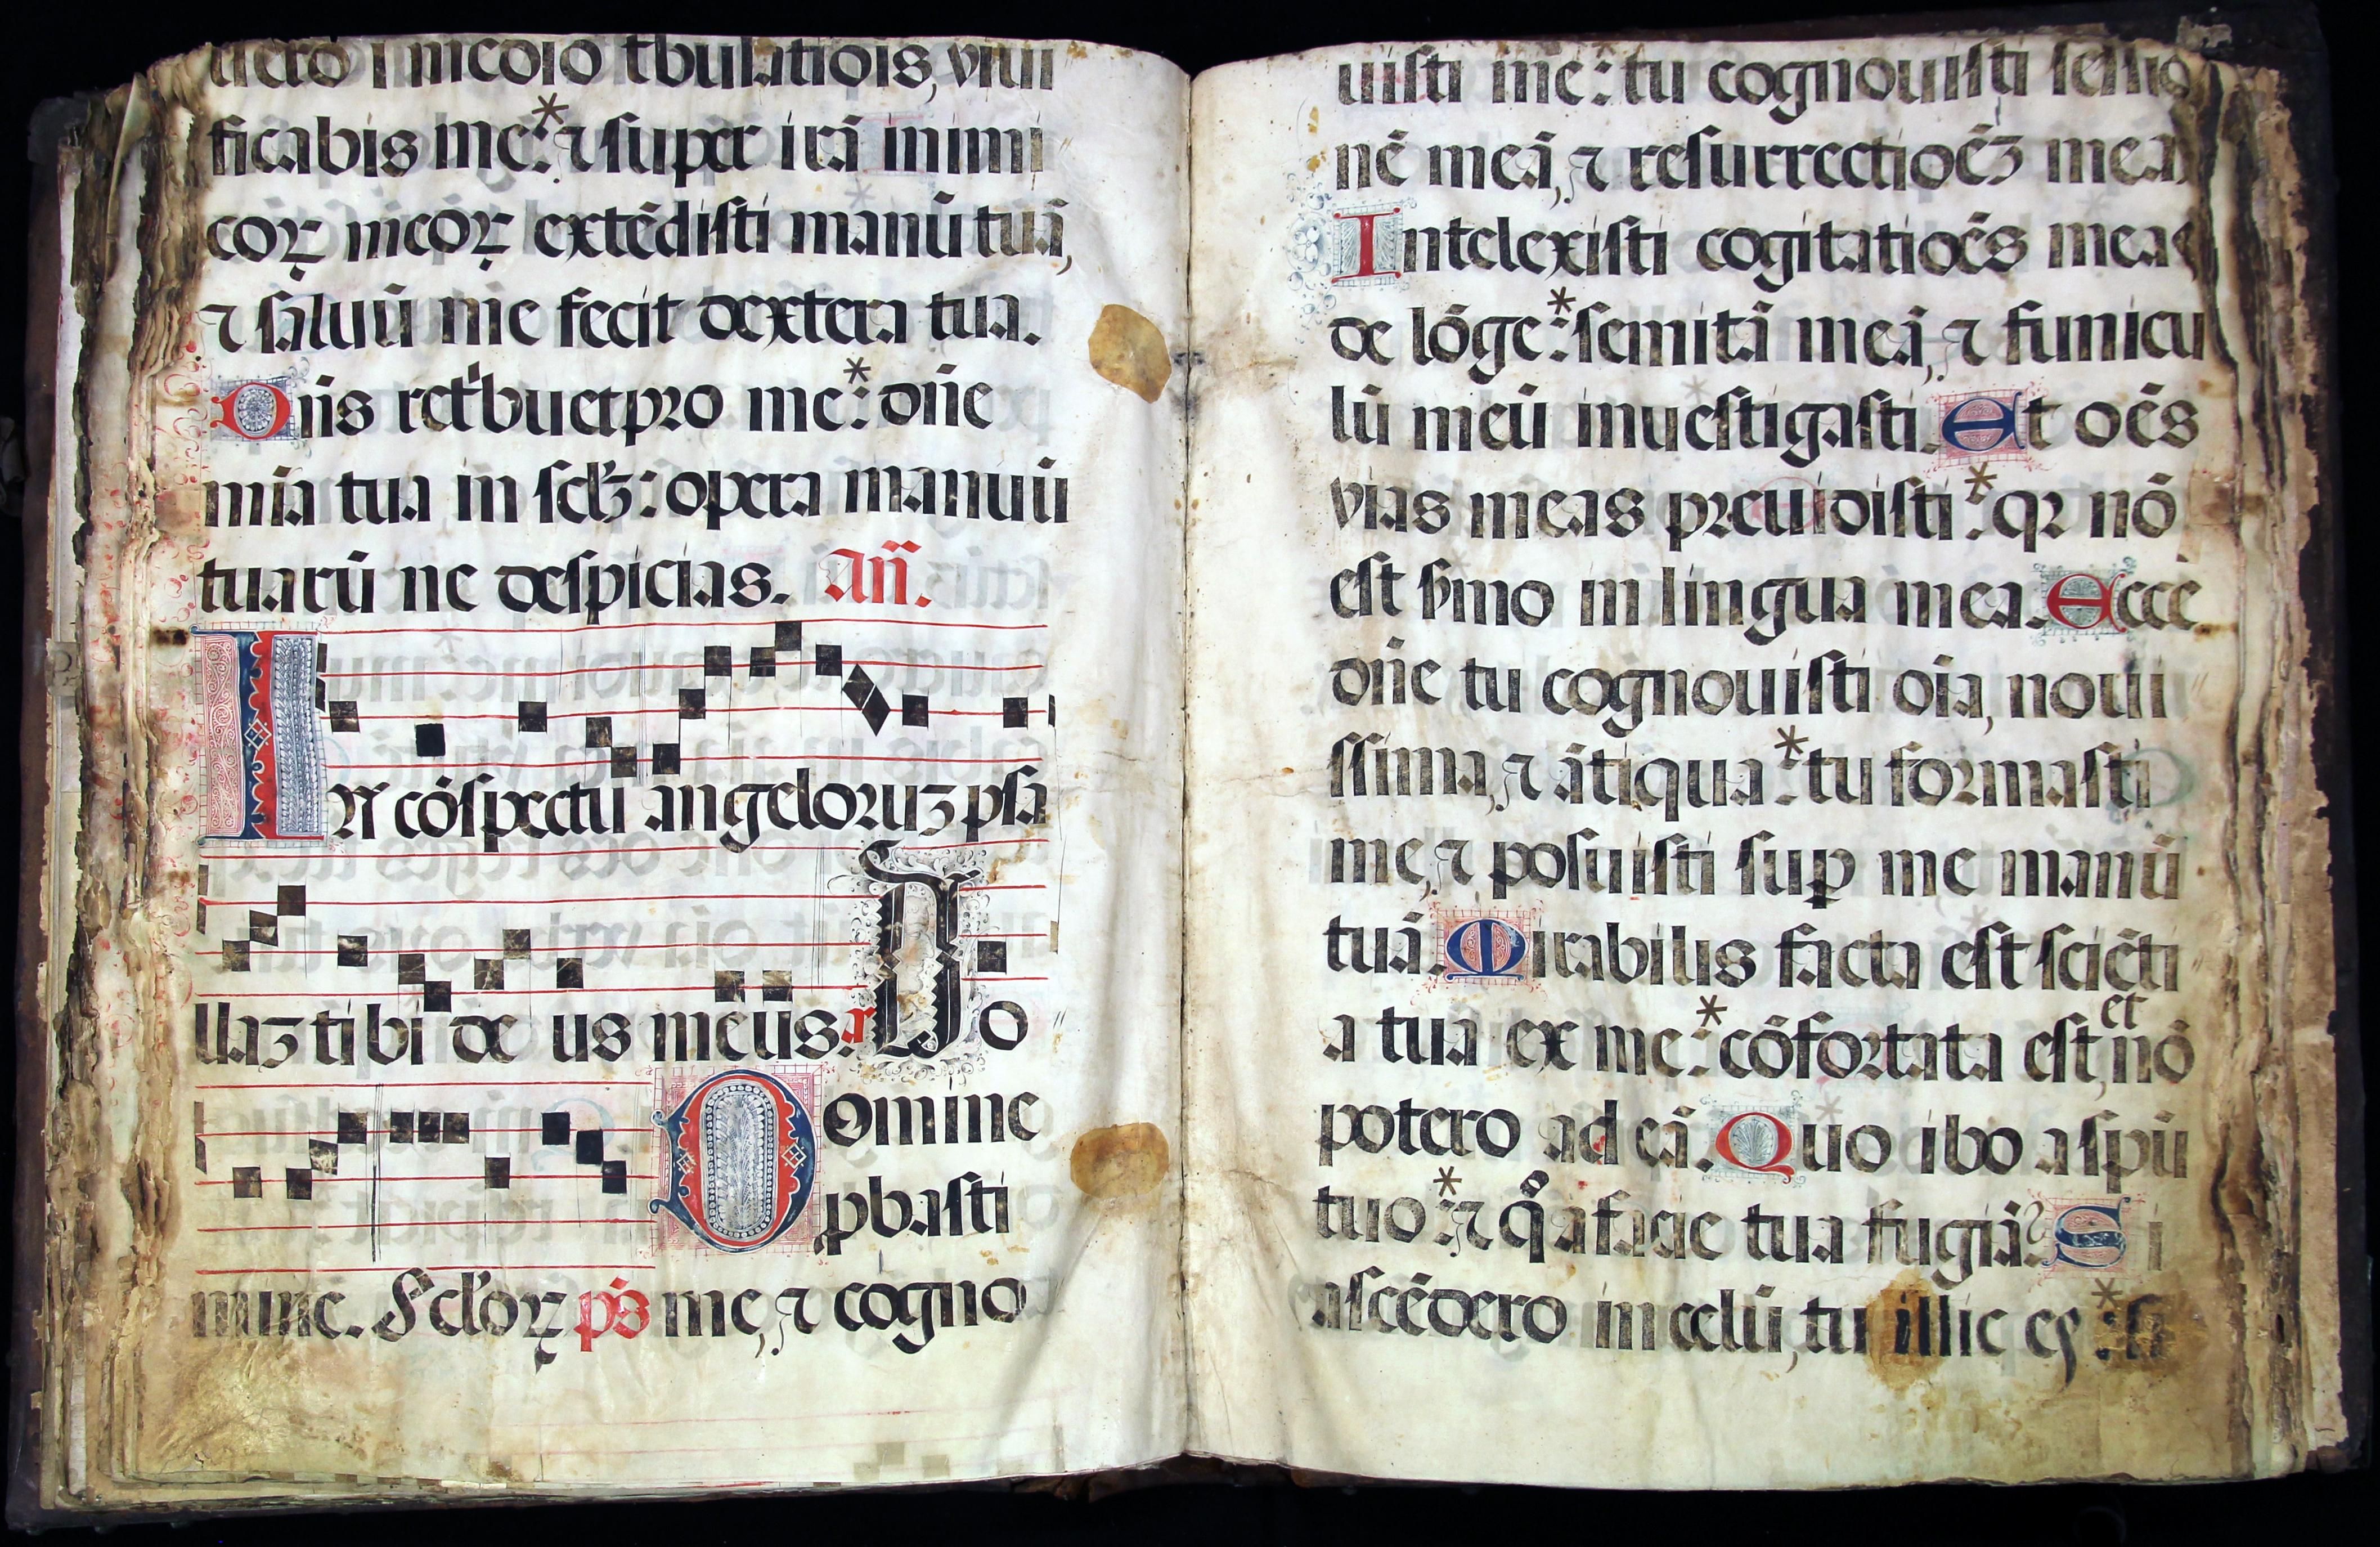 uero ī medio tbulatiois, vivi
ficabis me: * ⁊ super irā inimi
coꝝ meoꝝ extēdisti manū tuā,
⁊ saluū me fecit dextera tua.
Dn̄s ret'buet pro me: * dn̄e
mīa tua in sclꝫ: opera manuū
tuarū ne despicias. An̄.
In cōspectu angeloruꝫ psa
llaꝫ tibi de us meus. Do
omine
ꝓbasti
minc. Ecloꝝ ps me, ⁊ cogno
uisti me: tu cognouisti sessio
nē meā, ⁊ resurrectioēꝫ mea
Intelexisti cogitatioēs meas
de lōge: * semitā meā, ⁊ funicu
lū meū inuestigasti. Et oēs
vias meas preuidisti: * qꝛ nō
est smo in lingua mea. Ecce
dn̄e tu cognouisti oīa, noui
ssima, ⁊ ātiqua: * tu formasti
me, ⁊ posuisti suꝑ me manū
tuā. Mirabilis facta est sciēti
a tua ex me: * cōfortata est, et nō
potero ad eā. Quo ibo a spū
tuo: * ⁊ qͦ a facie tua fugiā? Si
ascēdero in celū, tu illic es: * si